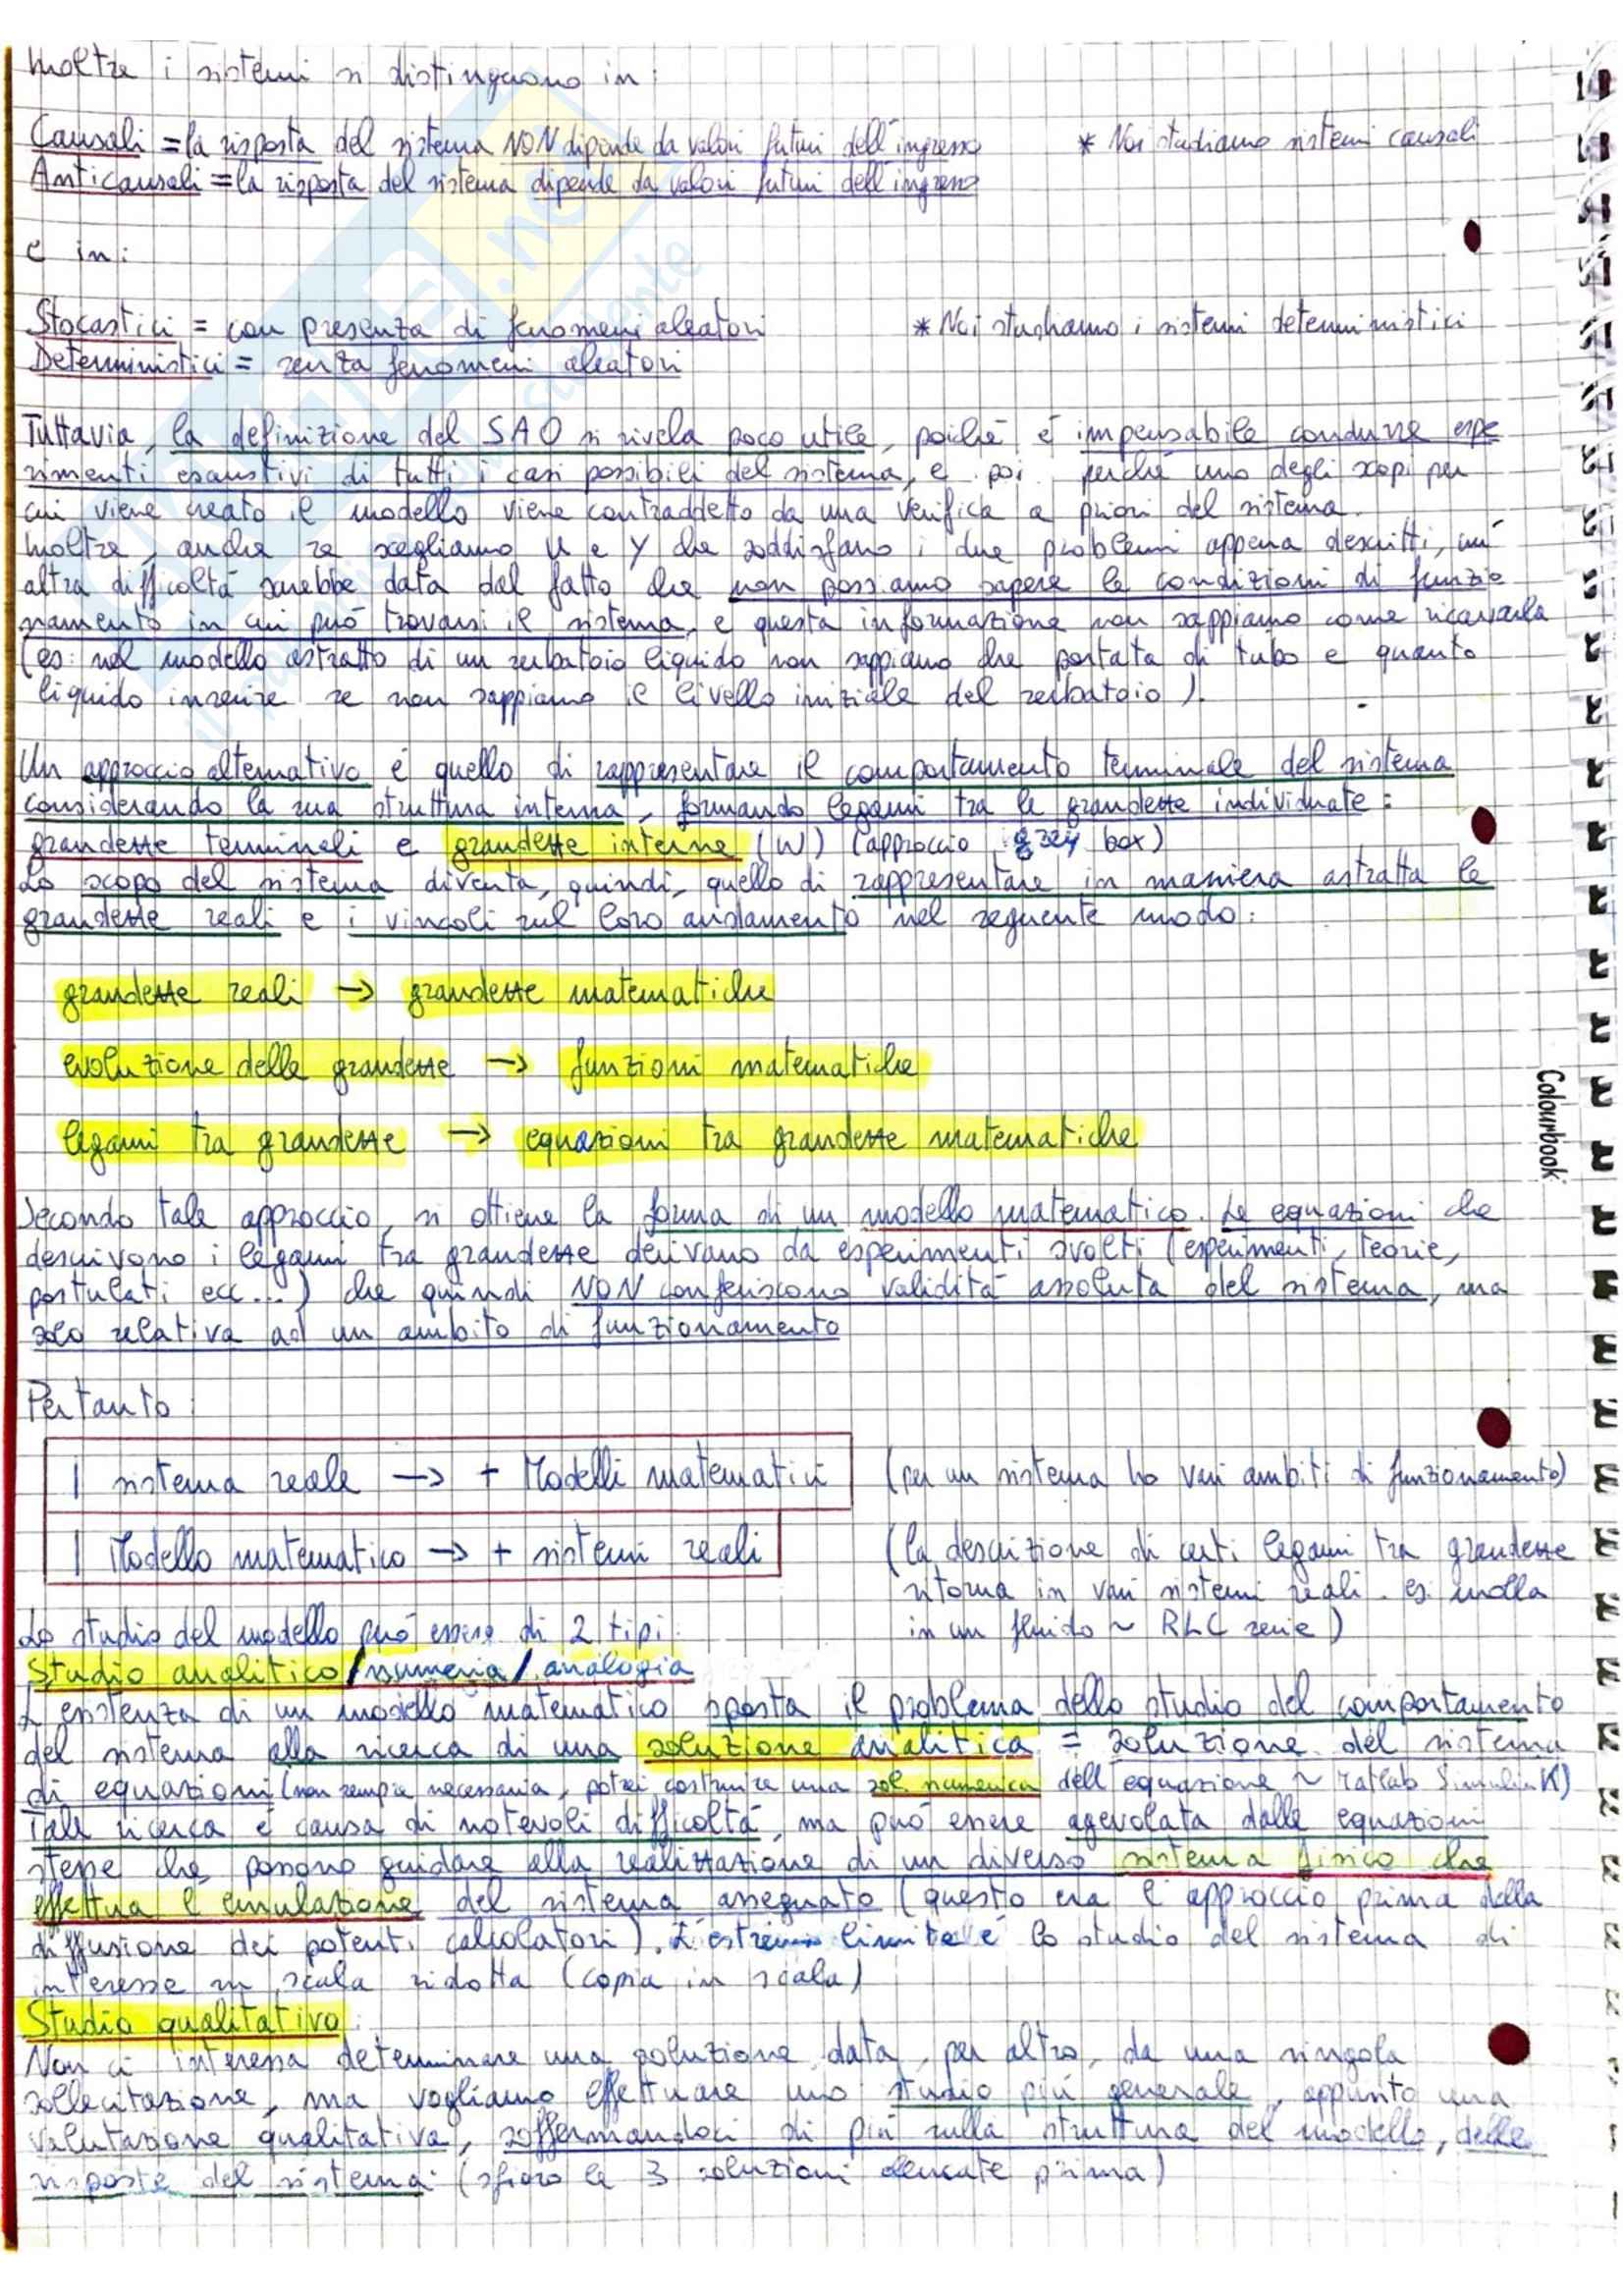 Inoltre i sistemi si distinguono in:
Causali = la risposta del sistema NON dipende da valori futuri dell'ingresso * Noi studiamo sistemi causali
Anticausali = la risposta del sistema dipende da valori futuri dell'ingresso
e in:
Stocastici = con presenza di fenomeni aleatori * Noi studiamo i sistemi deterministici
Deterministici = senza fenomeni aleatori
Tuttavia, la definizione del SAO si rivela poco utile, poiché é impensabile condurre espe
rimenti esaustivi di tutti i casi possibili del sistema, e poi perché uno degli scopi per
cui viene creato il modello viene contraddetto da una verifica a priori del sistema.
Inoltre, anche se scegliamo U e Y che soddisfano i due problemi appena descritti, un'
altra difficoltá sarebbe data dal fatto che non possiamo sapere le condizioni di funzio
namento in cui puó trovarsi il sistema, e questa informazione non sappiamo come ricavarla
(es: nel modello astratto di un serbatoio liquido non sappiamo che portata di tubo e quanto
liquido inserire se non sappiamo il livello iniziale del serbatoio).
Un approccio alternativo é quello di rappresentare il comportamento terminale del sistema
considerando la sua struttura interna, formando legami tra le grandezze individuate:
grandezze terminali e grandezze interne (W) (approccio grey box)
Lo scopo del sistema diventa, quindi, quello di rappresentare in maniera astratta le
grandezze reali e i vincoli sul loro andamento nel seguente modo:
grandezze reali → grandezze matematiche
evoluzione delle grandezze → funzioni matematiche
legami tra grandezze → equazioni tra grandezze matematiche
Colourbook
Secondo tale approccio, si ottiene la forma di un modello matematico. Le equazioni che
descrivono i legami tra grandezze derivano da esperimenti svolti (esperimenti, teorie,
postulati ecc...) che quindi NON conferiscono validitá assoluta del sistema, ma
solo relativa ad un ambito di funzionamento
Pertanto:
1 sistema reale → + Modelli matematici (per un sistema ho vari ambiti di funzionamento)
1 Modello matematico → + sistemi reali (la descrizione di certi legami tra grandezze
ritorna in vari sistemi reali. es. molla
in un fluido ~ RLC serie)
Lo studio del modello puó essere di 2 tipi:
Studio analitico/numeria/analogia
L'esistenza di un modello matematico sposta il problema dello studio del comportamento
del sistema alla ricerca di una soluzione analitica = soluzione del sistema
di equazioni (non sempre necessaria, potrei costruire una sol. numerica dell'equazione ~ Matlab Simulink)
Tale ricerca é causa di notevoli difficoltá, ma puó essere agevolata dalle equazioni
stesse che possono guidare alla realizzazione di un diverso sistema fisico che
effettua l'emulazione del sistema assegnato (questo era l'approccio prima della
diffusione dei potenti calcolatori). L'estremo limite é lo studio del sistema di
interesse in scala ridotta (copia in scala)
Studio qualitativo:
Non ci interessa determinare una soluzione data, per altro, da una singola
sollecitazione, ma vogliamo effettuare uno studio piú generale, appunto una
valutazione qualitativa, soffermandoci di piú sulla struttura del modello, delle
risposte del sistema. (sfioro le 3 soluzioni elencate prima)